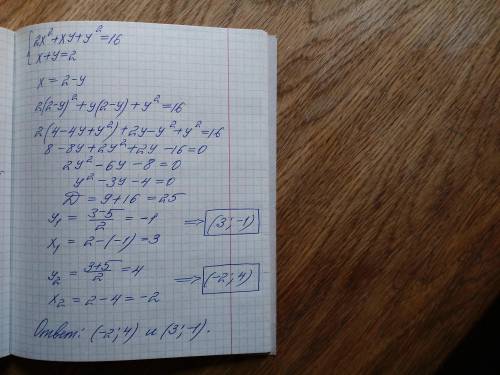 {2x²+xy+y²=16
x+y=2
x=2-y
2(2-y)²+y(2-y)+y²=16
2(4-4y+y²)+2y-y²+y²=16
8-8y+2y²+2y-16=0
2y²-6y-8=0
y²-3y-4=0
D=9+16=25
y₁=(3-5)/2=-1 ⇒ (3;-1)
x₁=2-(-1)=3
y₂=(3+5)/2=4 ⇒ (-2;4)
x₂=2-4=-2
Ответ: (-2;4) и (3;-1).